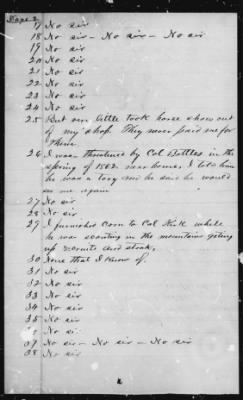 Page 2
17 No sir
18 No sir - No sir - No sir
19 No sir
20 No sir
21 No sir
22 No sir
23 No sir
24 No sir
25 But very little took horse shoes out
of my shop. They never paid me for
them
26 I was threatened by Col Battles in the
spring of 1862 near home. I told him
he was a tory and he said he would
see me again
27 No sir
28 No sir
29 I furnished corn to Col Kirk while
he was scouting in the mountains geting
up recruits and stock,
30 None that I know of.
31 No sir
32 No sir
33 No sir
34 No sir
35 No sir
No sir
37 No sir - No sir - No sir
38 No sir